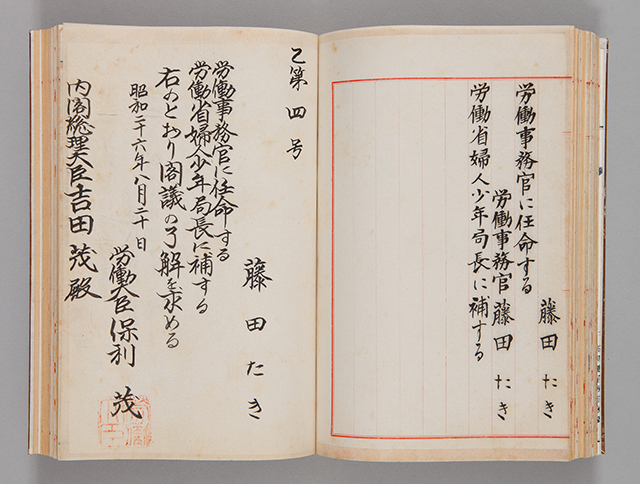 藤田たき
労働事務官に任命する
労働事務官 藤田たき
労働省婦人少年局長に補する
乙第四号
藤田たき
労働事務官に任命する
労働省婦人少年局長に補する
右のとおり閣議の了解を求める
昭和二十六年八月二十日
労働大臣 保利 茂
内閣総理大臣 吉田 茂殿